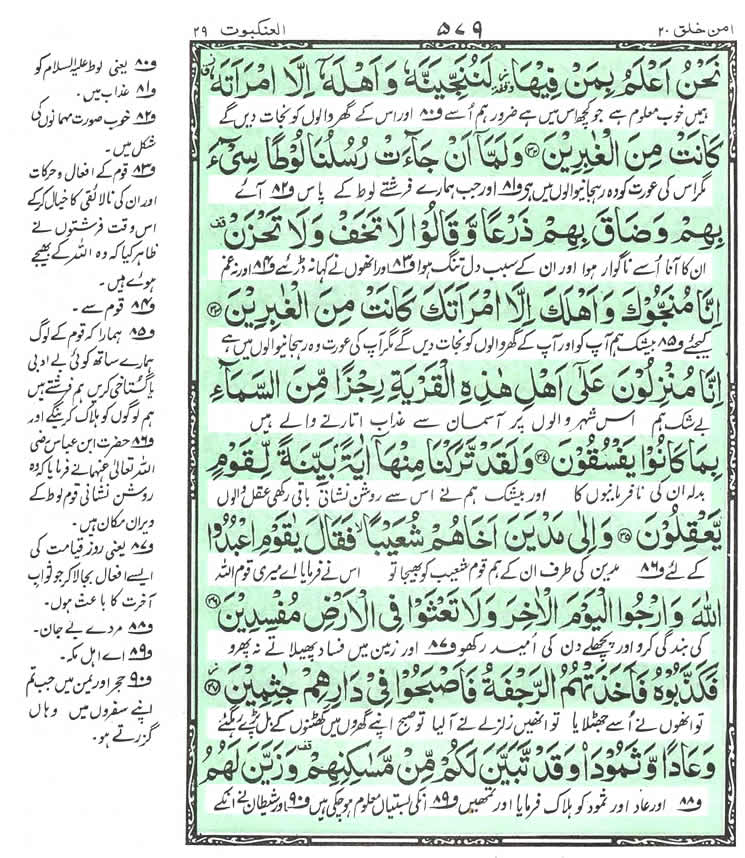 امن خلق ۲۰
۵۷۹
العنکبوت ۲۹
نَحْنُ اَعْلَمُ بِمَنْ فِيْهَا لَنُنَجِّيَنَّهٗ وَاَهْلَهٗۤ اِلَّا امْرَاَتَهٗ
ہمیں خوب معلوم ہے جو کچھ اس میں ہے ضرور ہم اُسے ف۸۰ اور اس کے گھر والوں کو نجات دیں گے
كَانَتْ مِنَ الْغٰبِرِيْنَ ۝۳۲ وَلَمَّاۤ اَنْ جَآءَتْ رُسُلُنَا لُوْطًا سِيْٓءَ
مگر اس کی عورت کو وہ رہ جانیوالوں میں ہے ف۸۱ اور جب ہمارے فرشتے لوط کے پاس ف۸۲ آئے
بِهِمْ وَضَاقَ بِهِمْ ذَرْعًا وَّقَالُوْا لَا تَخَفْ وَلَا تَحْزَنْ
ان کا آنا اُسے ناگوار ہوا اور ان کے سبب دل تنگ ہوا ف۸۳ اور انھوں نے کہا نہ ڈرئیے ف۸۴ اور نہ غم
اِنَّا مُنَجُّوْكَ وَاَهْلَكَ اِلَّا امْرَاَتَكَ كَانَتْ مِنَ الْغٰبِرِيْنَ ۝۳۳
کیجئے ف۸۵ بیشک ہم آپ کو اور آپ کے گھر والوں کو نجات دیں گے مگر آپ کی عورت وہ رہ جانیوالوں میں ہے
اِنَّا مُنْزِلُوْنَ عَلٰۤى اَهْلِ هٰذِهِ الْقَرْيَةِ رِجْزًا مِّنَ السَّمَآءِ
بے شک ہم اس شہر والوں پر آسمان سے عذاب اتارنے والے ہیں
بِمَا كَانُوْا يَفْسُقُوْنَ ۝۳۴ وَلَقَدْ تَّرَكْنَا مِنْهَاۤ اٰيَةًۢ بَيِّنَةً لِّقَوْمٍ
بدلہ ان کی نافرمانیوں کا اور بیشک ہم نے اس سے روشن نشانی باقی رکھی عقل والوں
يَّعْقِلُوْنَ ۝۳۵ وَاِلٰى مَدْيَنَ اَخَاهُمْ شُعَيْبًا فَقَالَ يٰقَوْمِ اعْبُدُوا
کے لئے ف۸۶ مدین کی طرف ان کے ہم قوم شعیب کو بھیجا تو اس نے فرمایا اے میری قوم اللہ
اللّٰهَ وَارْجُوا الْيَوْمَ الْاٰخِرَ وَلَا تَعْثَوْا فِى الْاَرْضِ مُفْسِدِيْنَ ۝۳۶
کی بندگی کرو اور پچھلے دن کی اُمید رکھو ف۸۷ اور زمین میں فساد پھیلاتے نہ پھرو
فَكَذَّبُوْهُ فَاَخَذَتْهُمُ الرَّجْفَةُ فَاَصْبَحُوْا فِيْ دَارِهِمْ جٰثِمِيْنَ ۝۳۷
تو انھوں نے اُسے جھٹلایا تو انھیں زلزلے نے آلیا تو صبح اپنے گھروں میں گھٹنوں کے بل پڑے رہ گئے
وَعَادًا وَّثَمُوْدَا۟ وَقَدْ تَّبَيَّنَ لَكُمْ مِّنْ مَّسٰكِنِهِمْ وَزَيَّنَ لَهُمُ
ف۸۸ اور عاد اور ثمود کو ہلاک فرمایا اور تمھیں ف۸۹ انکی بستیاں معلوم ہو چکی ہیں ف۹۰ اور شیطان نے انکے
ف۸۰ یعنی لوط علیہ السلام کو
ف۸۱ عذاب میں۔
ف۸۲ خوب صورت مہمانوں کی
شکل میں۔
ف۸۳ قوم کے افعال و حرکات
اور ان کی نالائقی کا خیال کرکے
اس وقت فرشتوں نے
ظاہر کیا کہ وہ اللہ کے بھیجے
ہوئے ہیں۔
ف۸۴ قوم سے۔
ف۸۵ ہمارا کہ قوم کے لوگ
ہمارے ساتھ کوئی بے ادبی
یا گستاخی کریں ہم فرشتے ہیں
ہم لوگوں کو ہلاک کرینگے اور
ف۸۶ حضرت ابن عباس رضی
اللہ تعالٰی عنہما نے فرمایا کہ وہ
روشن نشانی قوم لوط کے
ویران مکان ہیں۔
ف۸۷ یعنی روز قیامت کی
ایسے افعال بجا لا کر جو ثواب
آخرت کا باعث ہوں۔
ف۸۸ مردے بے جان۔
ف۸۹ اے اہل مکہ۔
ف۹۰ حجر اور یمن میں جب تم
اپنے سفروں میں وہاں
گزرتے ہو۔